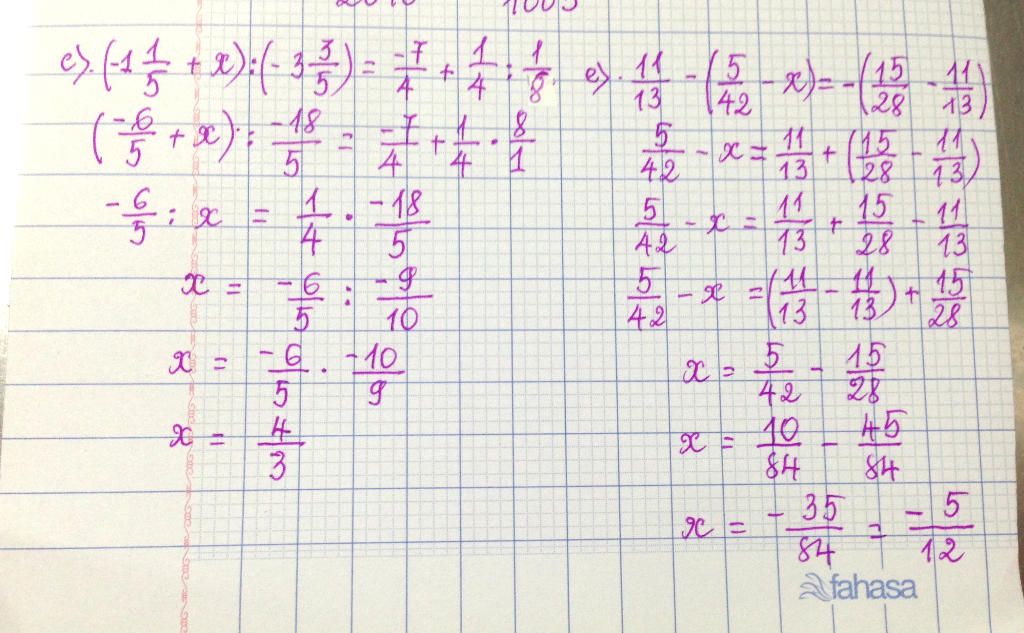 c). (-1 1/5 + x) : (-3 3/5) = -7/4 + 1/4 : 1/8
(-6/5 + x) : -18/5 = -7/4 + 1/4 . 8/1
-6/5 : x = 1/4 . -18/5
x = -6/5 : -9/10
x = -6/5 . -10/9
x = 4/3
e). 11/13 - (5/42 - x) = -(15/28 - 11/13)
5/42 - x = 11/13 + (15/28 - 11/13)
5/42 - x = 11/13 + 15/28 - 11/13
5/42 - x = (11/13 - 11/13) + 15/28
x = 5/42 - 15/28
x = 10/84 - 45/84
x = -35/84 = -5/12
fahasa